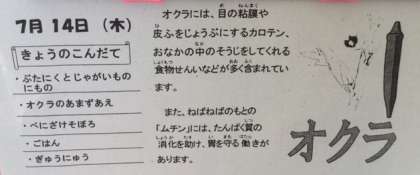 7月14日（木）
きょうのこんだて
・ぶたにくとじゃがいもの
にもの
・オクラのあまずあえ
・べにざけそぼろ
・ごはん
・ぎゅうにゅう
オクラには、目の粘膜や
皮ふをじょうぶにするカロテン、
おなかの中のそうじをしてくれる
食物せんいなどが多く含まれてい
ます。
また、ねばねばのもとの
「ムチン」には、たんぱく質の
消化を助け、胃を守る働きが
あります。
オクラ